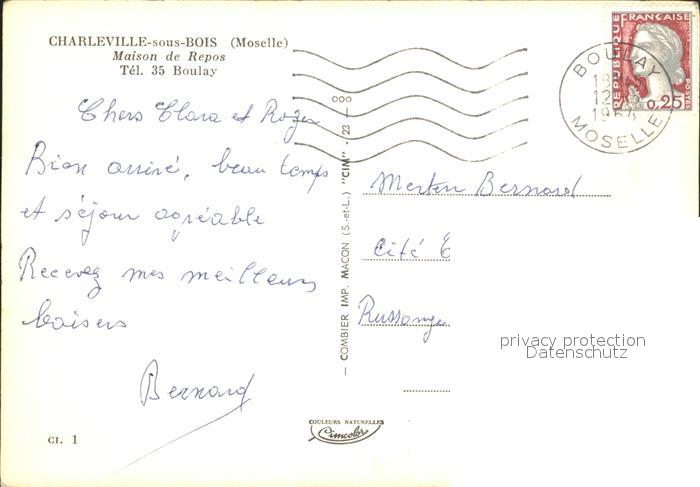 CHARLEVILLE-sous-BOIS (Moselle)
Maison de Repos
Tél. 35 Boulay
Chers Clara et Roger
Bien arrivé, beau temps
et séjour agréable
Recevez mes meilleurs
baisers
Bernard
CI. 1
— COMBIER IMP. MACON (S.-et-L.) "CIM" - 23 —
ooo
COULEURS NATURELLES
Cimcolor
REPUBLIQUE FRANCAISE
POSTES
0,25
BOULAY
MOSELLE
Merten Bernard
Cité
Russange
privacy protection
Datenschutz